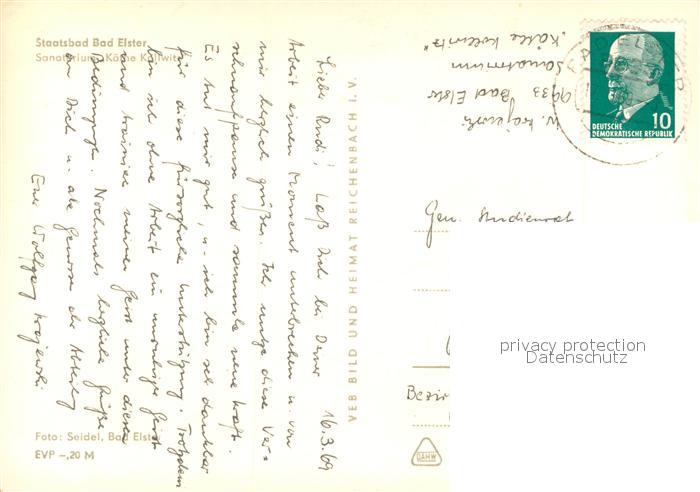 Staatsbad Bad Elster
Sanatorium Käthe Kollwitz
16.3.69
Lieber Rudi! Laß Dich bei Deiner
Arbeit einen Moment unterbrechen u. von
mir herzlich grüßen. Ich nutze diese Ver=
schnaufpause und sammle neue Kraft.
Es tut mir gut, u. ich bin sehr dankbar
für diese fürsorgliche Unterstützung. Trotzdem
bin ich ohne Arbeit ein unruhiger Geist
und trainiere meinen Geist unter diesen
Bedingungen. Nochmals herzliche Grüße
an Dich u. alle Genossen der Abteilung
Euer Wolfgang Krajewski
Foto: Seidel, Bad Elster
EVP –,20 M
VEB BILD UND HEIMAT REICHENBACH I. V.
W. Krajewski
9933 Bad Elster
Sanatorium
"Käthe Kollwitz"
10
DEUTSCHE
DEMOKRATISCHE REPUBLIK
Gen. Studienrat
privacy protection
Datenschutz
Bezir
DAHW